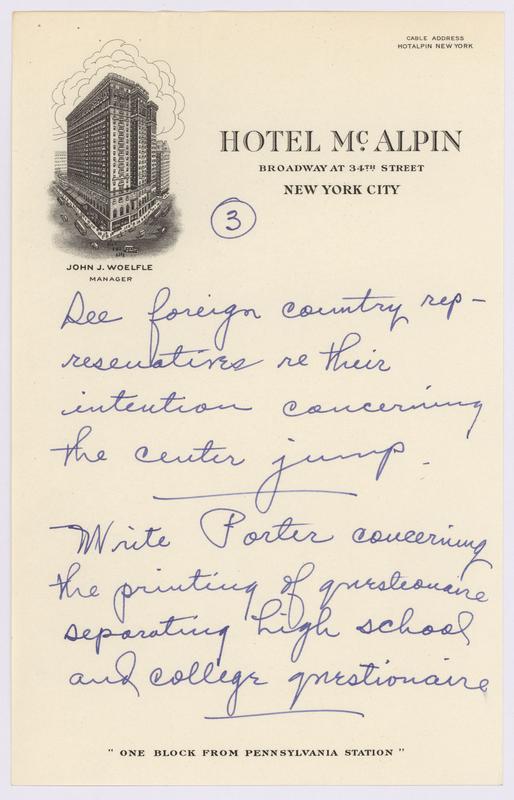 CABLE ADDRESS
HOTALPIN NEW YORK
HOTEL McALPIN
BROADWAY AT 34TH STREET
NEW YORK CITY
3
JOHN J. WOELFLE
MANAGER
See foreign country rep-
resenatives re their
intention concerning
the center jump.
Write Porter concerning
the printing of questionaire
separating high school
and college questionaire
" ONE BLOCK FROM PENNSYLVANIA STATION "